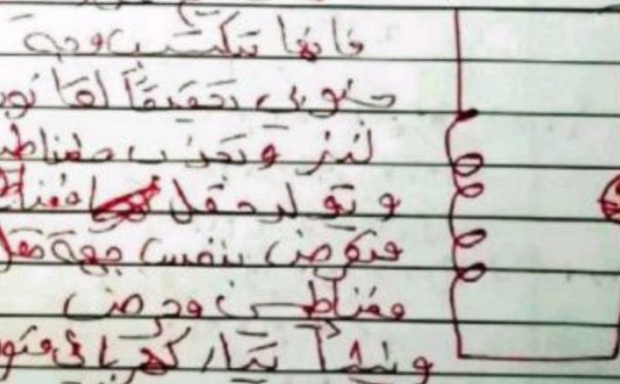 فانها تكتسب وجه
جنوبي تحقيقاً لقانو
لنز و تجذب مغناط
و تولد حقل مغنا
معوض بنفس جهة حقل
مغناطيسي ومحرض
وينشأ تيار كهربائي